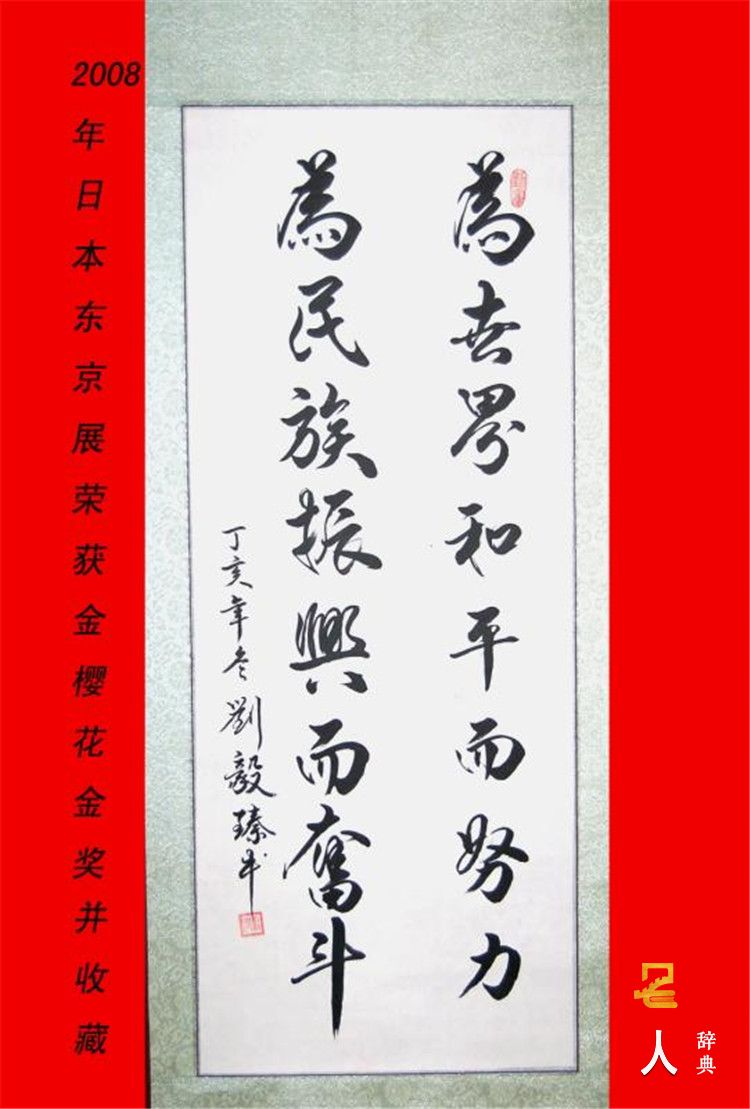 2008年日本东京展荣获金樱花金奖并收藏
為世界和平而努力
為民族振興而奮斗
丁亥年冬劉毅臻书
人
辞典